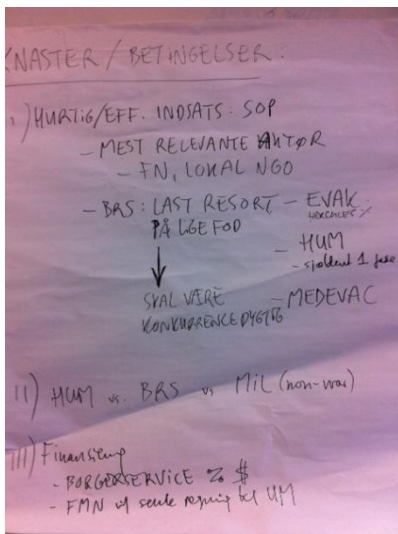 KNASTER / BETINGELSER:
I) HURTIG/EFF. INDSATS: SOP
- MEST RELEVANTE AKTØR
- FN, LOKAL NGO
- BRS: LAST RESORT - EVAK.
PÅ LIGE FOD
- HUM
- sjældent 1 fase
SKAL VÆRE - MEDEVAC
KONKURRENCEDYGTIG
II) HUM vs. BRS vs MIL (non-war)
III) Finansiering
- BORGERSERVICE % $
- FMN vil sende regning til UM